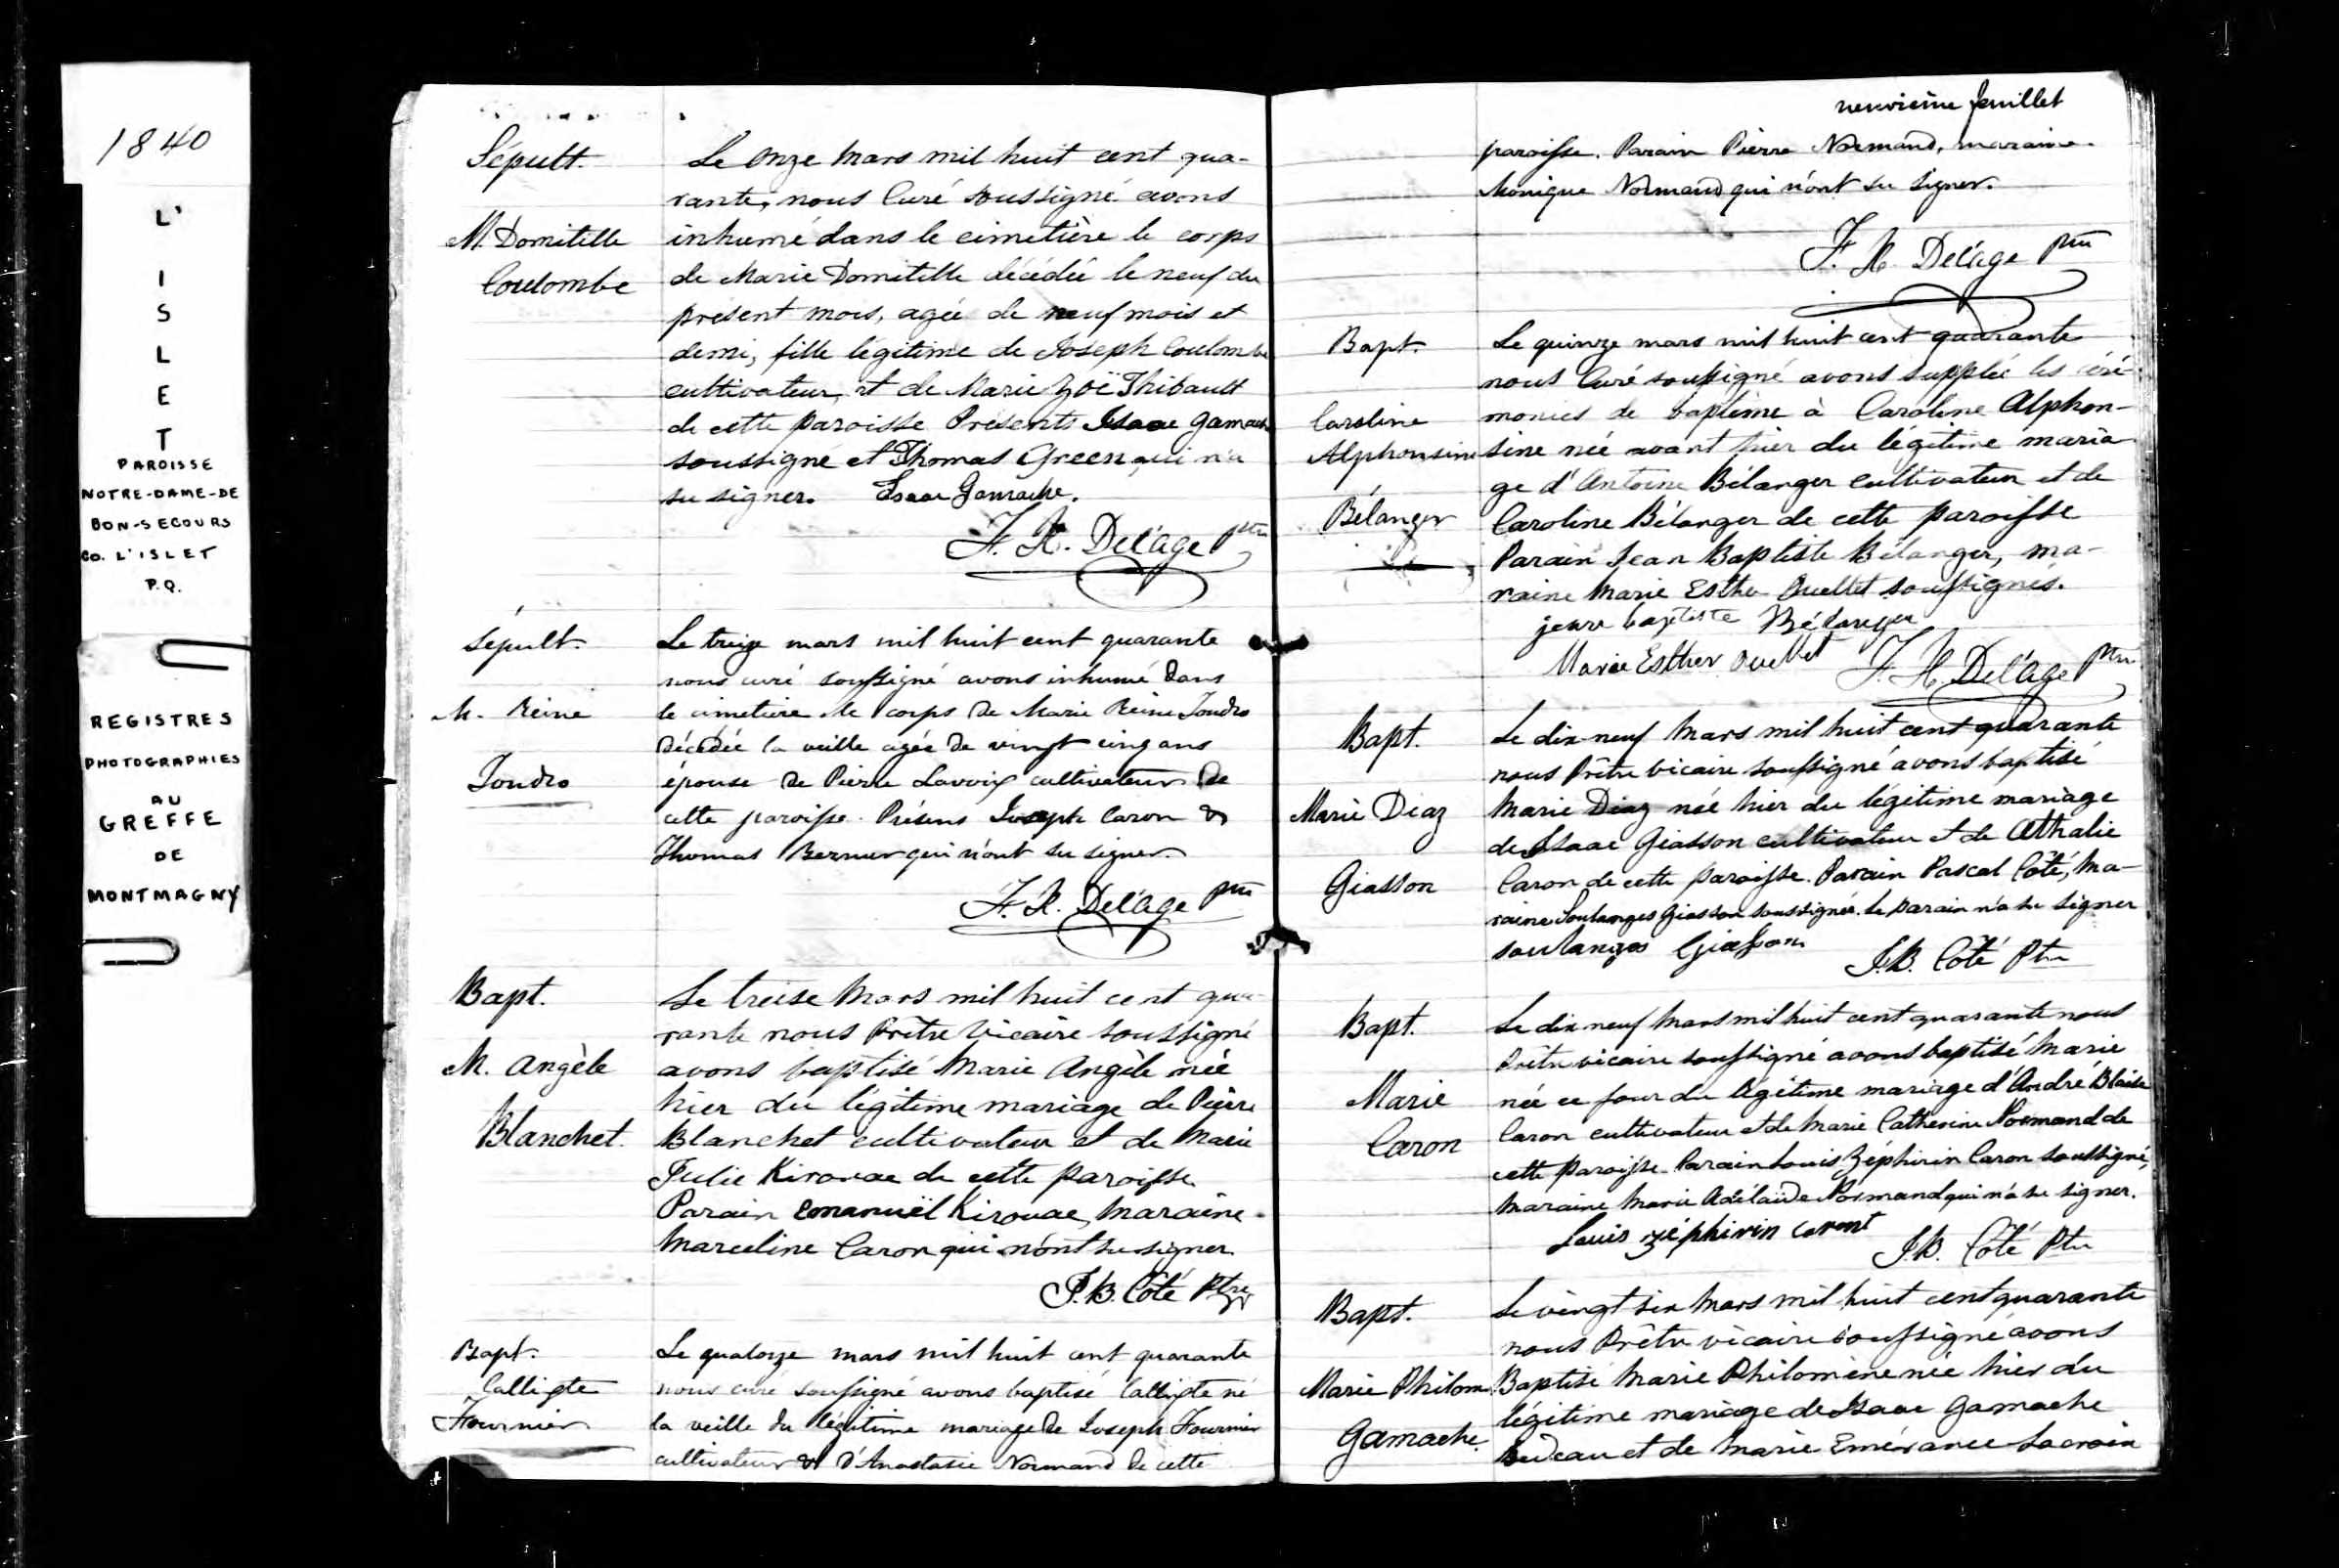 1840
L'
I
S
L
E
T
PAROISSE
NOTRE-DAME-DE
BON-SECOURS
CO. L'ISLET
P.Q.
REGISTRES
PHOTOGRAPHIES
AU
GREFFE
DE
MONTMAGNY
Sépult.
M. Domitille
Coulombe
Le Onze Mars mil huit cent qua-
rante, nous Curé soussigné avons
inhumé dans le cimetière le corps
de Marie Domitille décédée le neuf du
présent mois, agée de neuf mois et
demi, fille légitime de Joseph Coulombe
cultivateur, et de Marie Zoë Thibault
de cette paroisse Présents Isaac Gamache
soussigne et Thomas Green qui n'a
su signer. Isaac Gamache.
F. X. Delâge Ptre
Sépult.
M. Reine
Jondro
Le treize mars mil huit cent quarante
nous curé soussigné avons inhumé dans
le cimetiere le corps de Marie Reine Jondro
décédée la veille agée de vingt cinq ans
épouse de Pierre Lavoix cultivateur de
cette paroisse. Présens Joseph Caron &
Thomas Bernier qui n'ont su signer.
F. X. Delâge Ptre
Bapt.
M. Angèle
Blanchet.
Le treise Mars mil huit cent qua-
rante nous Prêtre Vicaire soussigné
avons baptisé Marie Angèle née
hier du légitime mariage de Pierre
Blanchet cultivateur et de Marie
Julie Kirouac de cette paroisse
Parain Emanuël Kirouac, Maraine
Marceline Caron qui n'ont su signer
J.B. Côté Ptre
Bapt.
Calligte
Fournier
Le quatorze mars mil huit cent quarante
nous curé soussigné avons baptisé Calligte né
la veille du légitime mariage de Joseph Fournier
cultivateur & d'Anastasie Normand de cette
neuvième feuillet
paroisse. Parain Pierre Normand, maraine
Monique Normand qui n'ont su signer.
F. X. Delâge Ptre
Bapt.
Caroline
Alphonsine
Bélanger
Le quinze mars mil huit cent quarante
nous Curé soussigné avons supplée les céré-
monies de baptême à Caroline Alphon-
sine née avant hier du légitime maria-
ge d'Antoine Bélanger cultivateur et de
Caroline Bélanger de cette paroisse
Parain Jean Baptiste Bélanger, ma-
raine Marie Esther Ouellet soussignés.
jean baptiste Bélanger
Marie Esther Ouellet F. X. Delâge Ptre
Bapt.
Marie Diaz
Giasson
Le dix-neuf Mars mil huit cent quarante
nous Prêtre vicaire soussigné avons baptisé
Marie Diaz née hier du légitime mariage
de Isaac Giasson cultivateur et de Athalie
Caron de cette paroisse. Parain Pascal Côté, Ma-
raine Soulanges Giasson soussignée. Le parain n'a su signer
soulanges Giasson J.B. Côté Ptre
Bapt.
Marie
Caron
Le dix neuf Mars mil huit cent quarante nous
Prêtre vicaire soussigné avons baptisé Marie
née ce jour du légitime mariage d'André Blaise
Caron cultivateur et de Marie Catherine Normand de
cette paroisse. Parain Louis Zéphirin Caron soussigné,
Maraine Marie Adélaïde Normand qui n'a su signer.
Louis zéphirin Caront J.B. Côté Ptre
Bapt.
Marie Philom.
Gamache.
Le vingt six Mars mil huit cent quarante
nous Prêtre vicaire soussigné avons
Baptisé Marie Philomène née hier du
légitime mariage de Isaac Gamache
bedeau et de Marie Emérance Lacroix